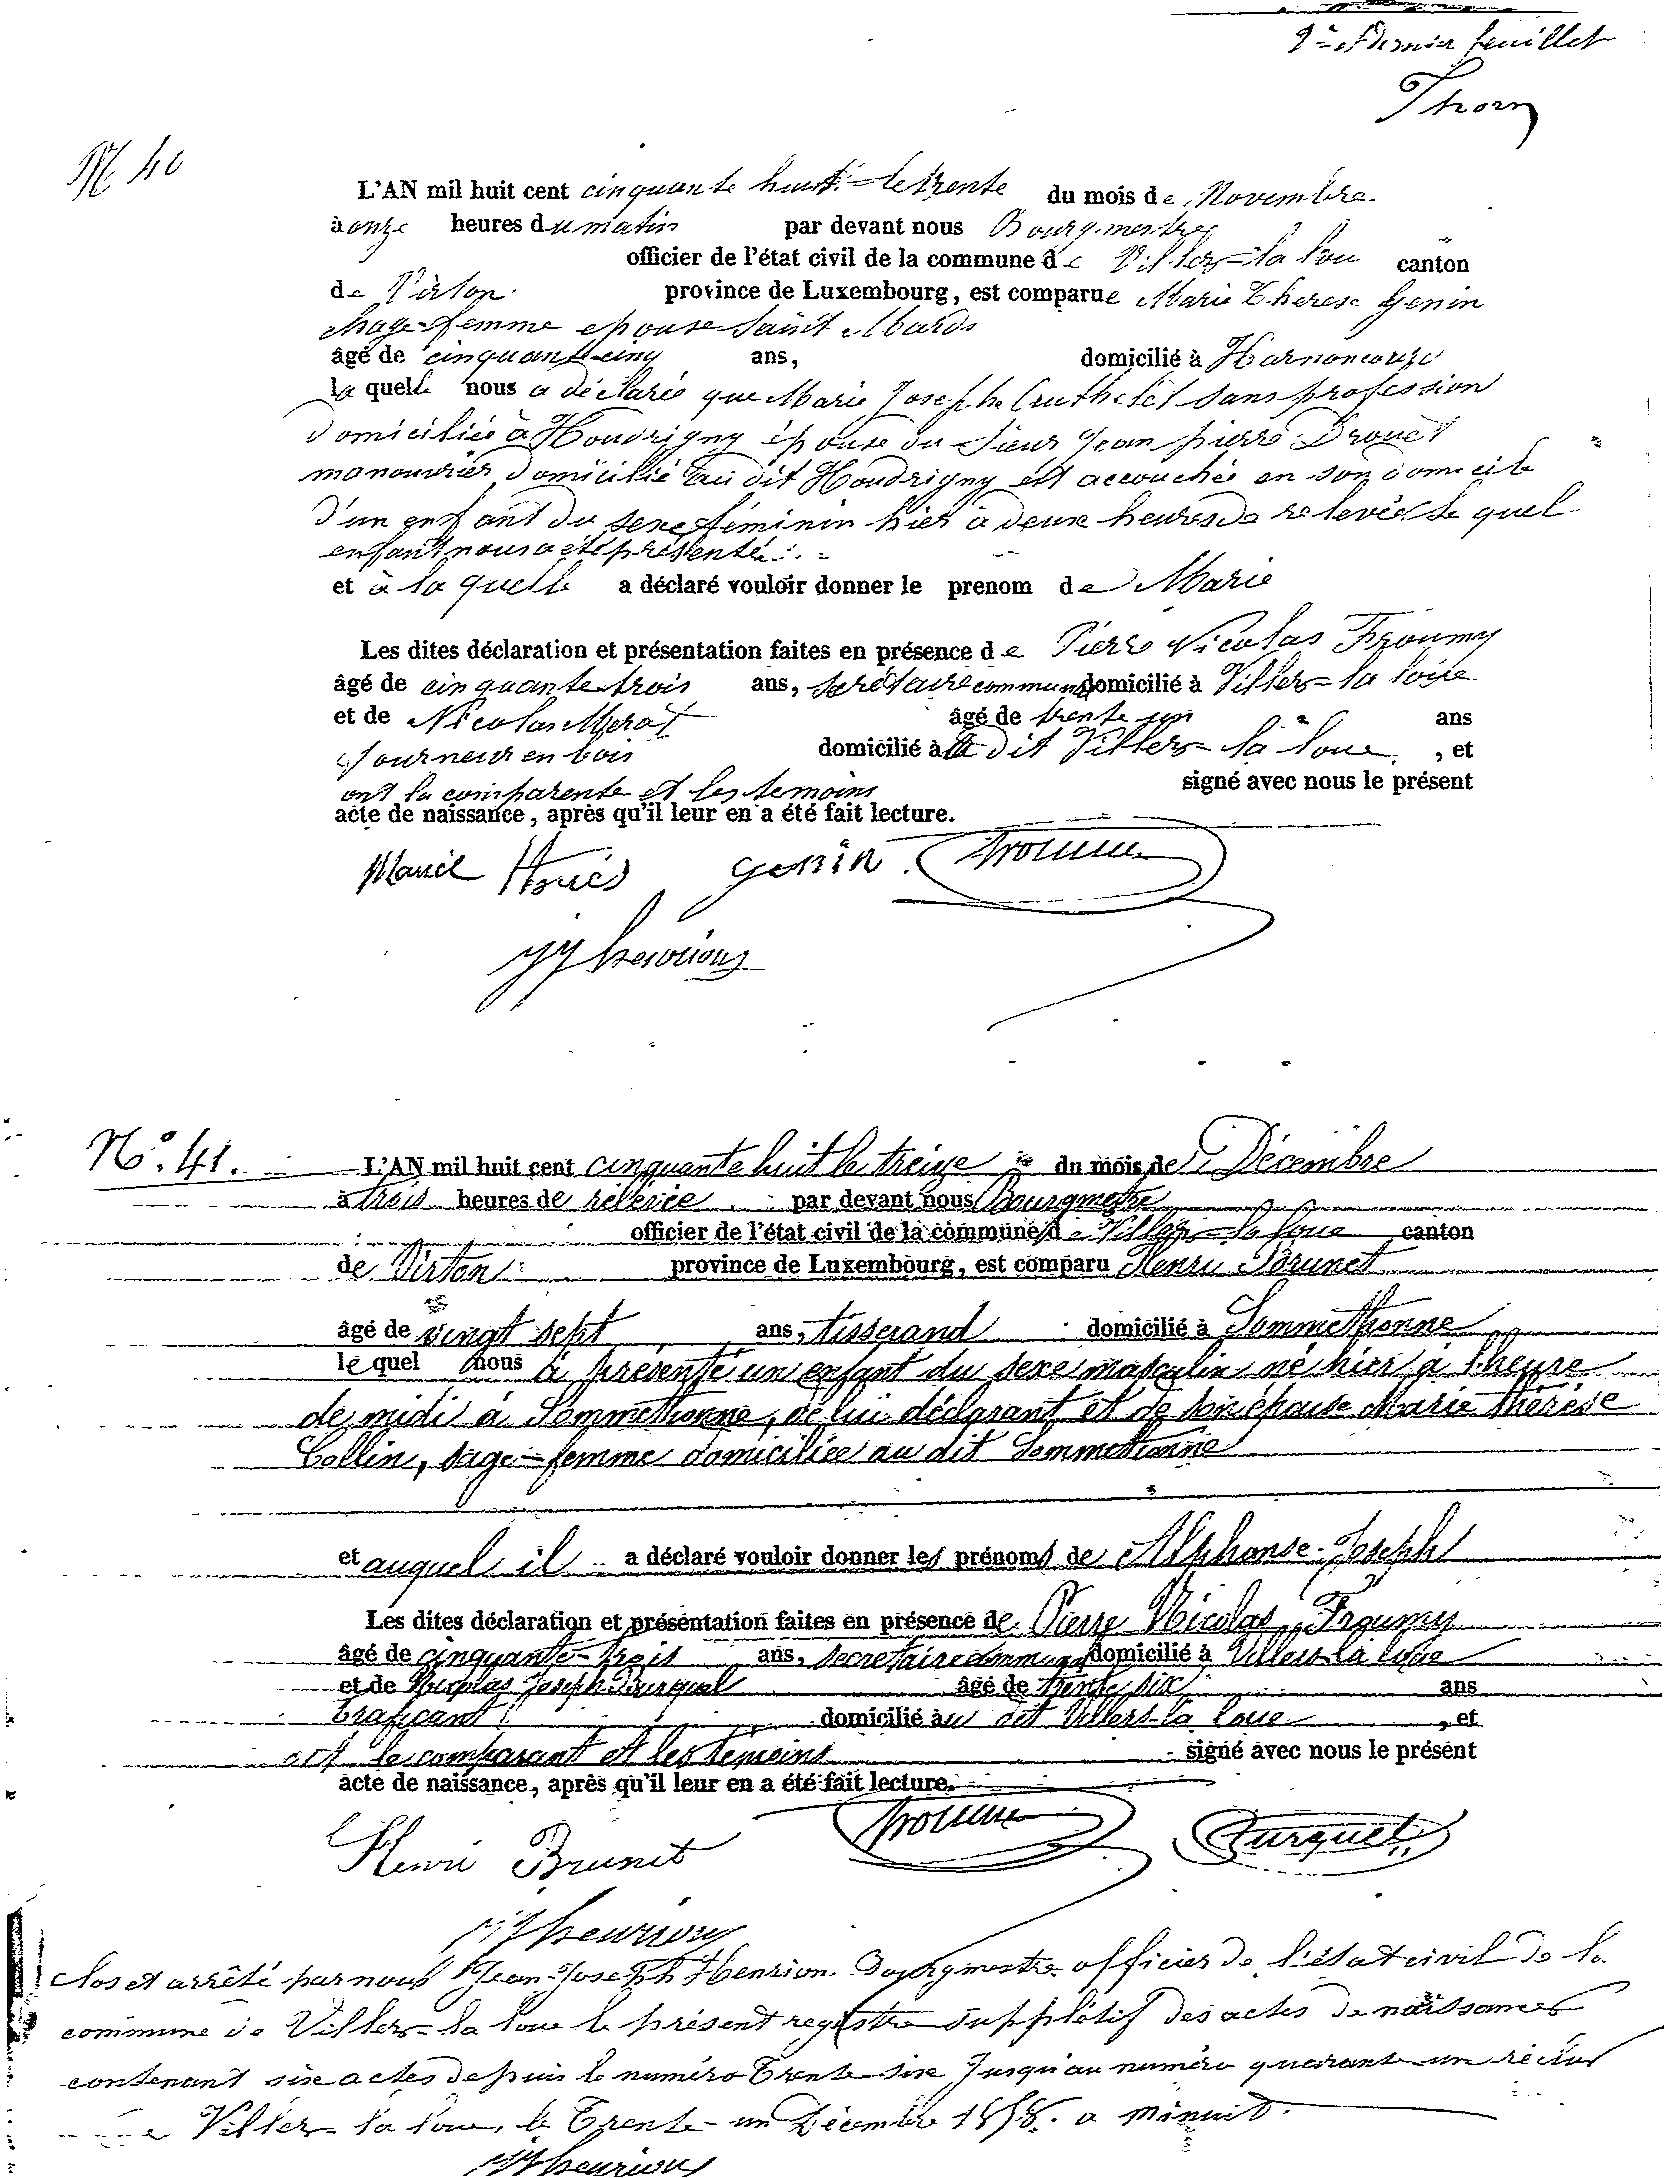 2e et dernier feuillet
Thorn
No 40
L'AN mil huit cent cinquante huit = le trente du mois de Novembre
à onze heures du matin par devant nous Bourgmestre
officier de l'état civil de la commune de Villers=la loue canton
de Virton province de Luxembourg, est comparue Marie Therese Genin
sage=femme epouse Saint Mards
âgé de cinquante-cinq ans, domicilié à Harnoncourt
la quelle nous a déclaré que Marie Joseph Cruthelet sans profession
domiciliée à Houdrigny épouse du sieur Jean pierre Drouet
manouvrier domicilié au dit Houdrigny est accouchée en son domicile
d'un enfant du sexe féminin hier à deux heures de relevée le quel
enfant nous a été présenté
et à la quelle a déclaré vouloir donner le prenom de Marie
Les dites déclaration et présentation faites en présence de Pierre Nicolas Froumy
âgé de cinquante-trois ans, secrétaire communal domicilié à Villers=la loue
et de Nicolas Merat âgé de trente un ans
tourneur en bois domicilié au dit Villers=la loue, et
ont la comparente et les temoins signé avec nous le présent
acte de naissance, après qu'il leur en a été fait lecture.
genin Froumy
JJ henrion
No. 41.
L'AN mil huit cent cinquante huit le treize du mois de Décembre
à trois heures de relevée par devant nous Bourgmestre
officier de l'état civil de la commune de Villers=la loue canton
de Virton province de Luxembourg, est comparu Henri Brunet
âgé de vingt sept ans, tisserand domicilié à Sommethonne
le quel nous à présenté un enfant du sexe masculin né hier à l'heure
de midi à Sommethonne, de lui déclarant et de son épouse Marie Thérèse
Collin, sage=femme domiciliée au dit Sommethonne
et auquel il a déclaré vouloir donner les prénoms de Alphonse-Joseph
Les dites déclaration et présentation faites en présence de Pierre Nicolas Froumy
âgé de cinquante-trois ans, secretaire communal domicilié à Villers-la loue
et de Nicolas Joseph Purquet âgé de trente six ans
trafiçant domicilié au dit Villers-la loue, et
ont le comparant et les témoins signé avec nous le présent
acte de naissance, après qu'il leur en a été fait lecture.
Henri Brunet Froumy Purquet
JJ henrion
Clos et arrêté par nous Jean-Joseph Henrion Bourgmestre officier de l'état civil de la
commune de Villers=la loue le présent registre supplétif des actes de naissances
contenant six actes depuis le numéro trente six jusqu'au numéro quarante un
Villers=la loue, le Trente-un Décembre 1858. a minuit.
JJ henrion